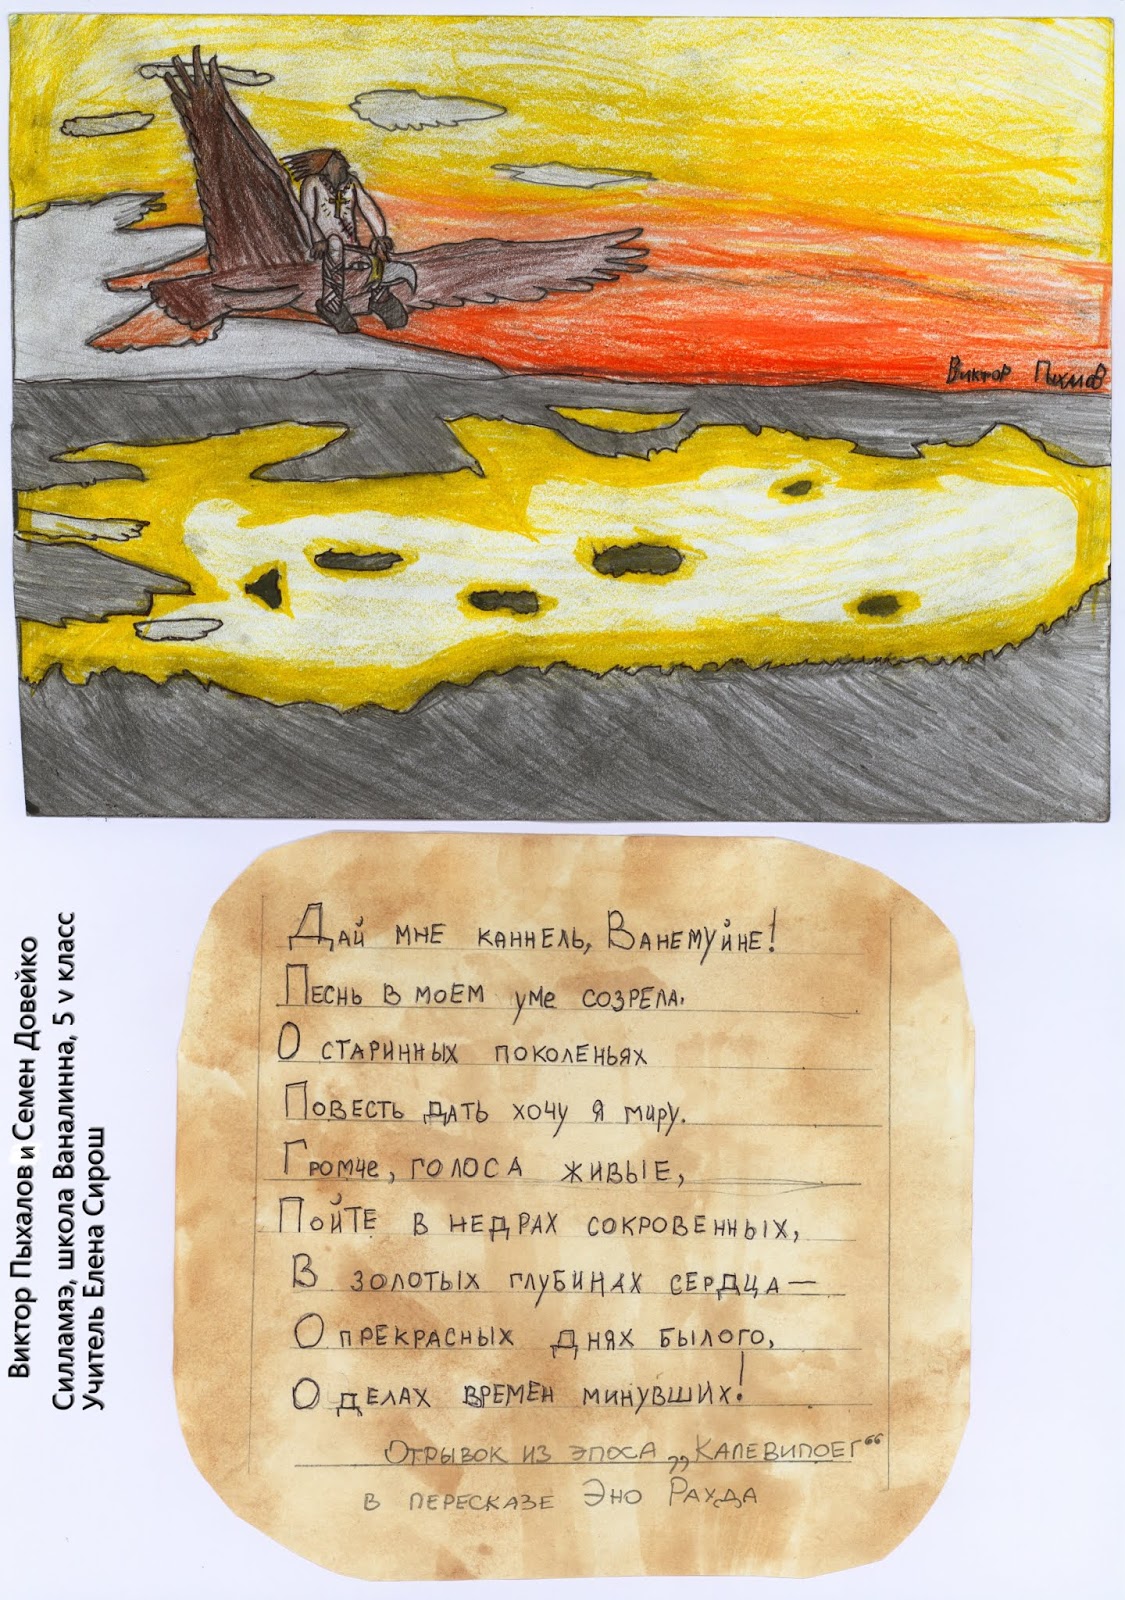 Виктор Пыхалов
Дай мне каннель, Ванемуйне!
Песнь в моем уме созрела.
О старинных поколеньях
Повесть дать хочу я миру.
Громче, голоса живые,
Пойте в недрах сокровенных,
В золотых глубинах сердца —
О прекрасных днях былого,
О делах времен минувших!
Отрывок из эпоса „Калевипоег“
в пересказе Эно Рахда
Виктор Пыхалов и Семен Довейко
Силламяэ, школа Ваналинна, 5 v класс
Учитель Елена Сирош